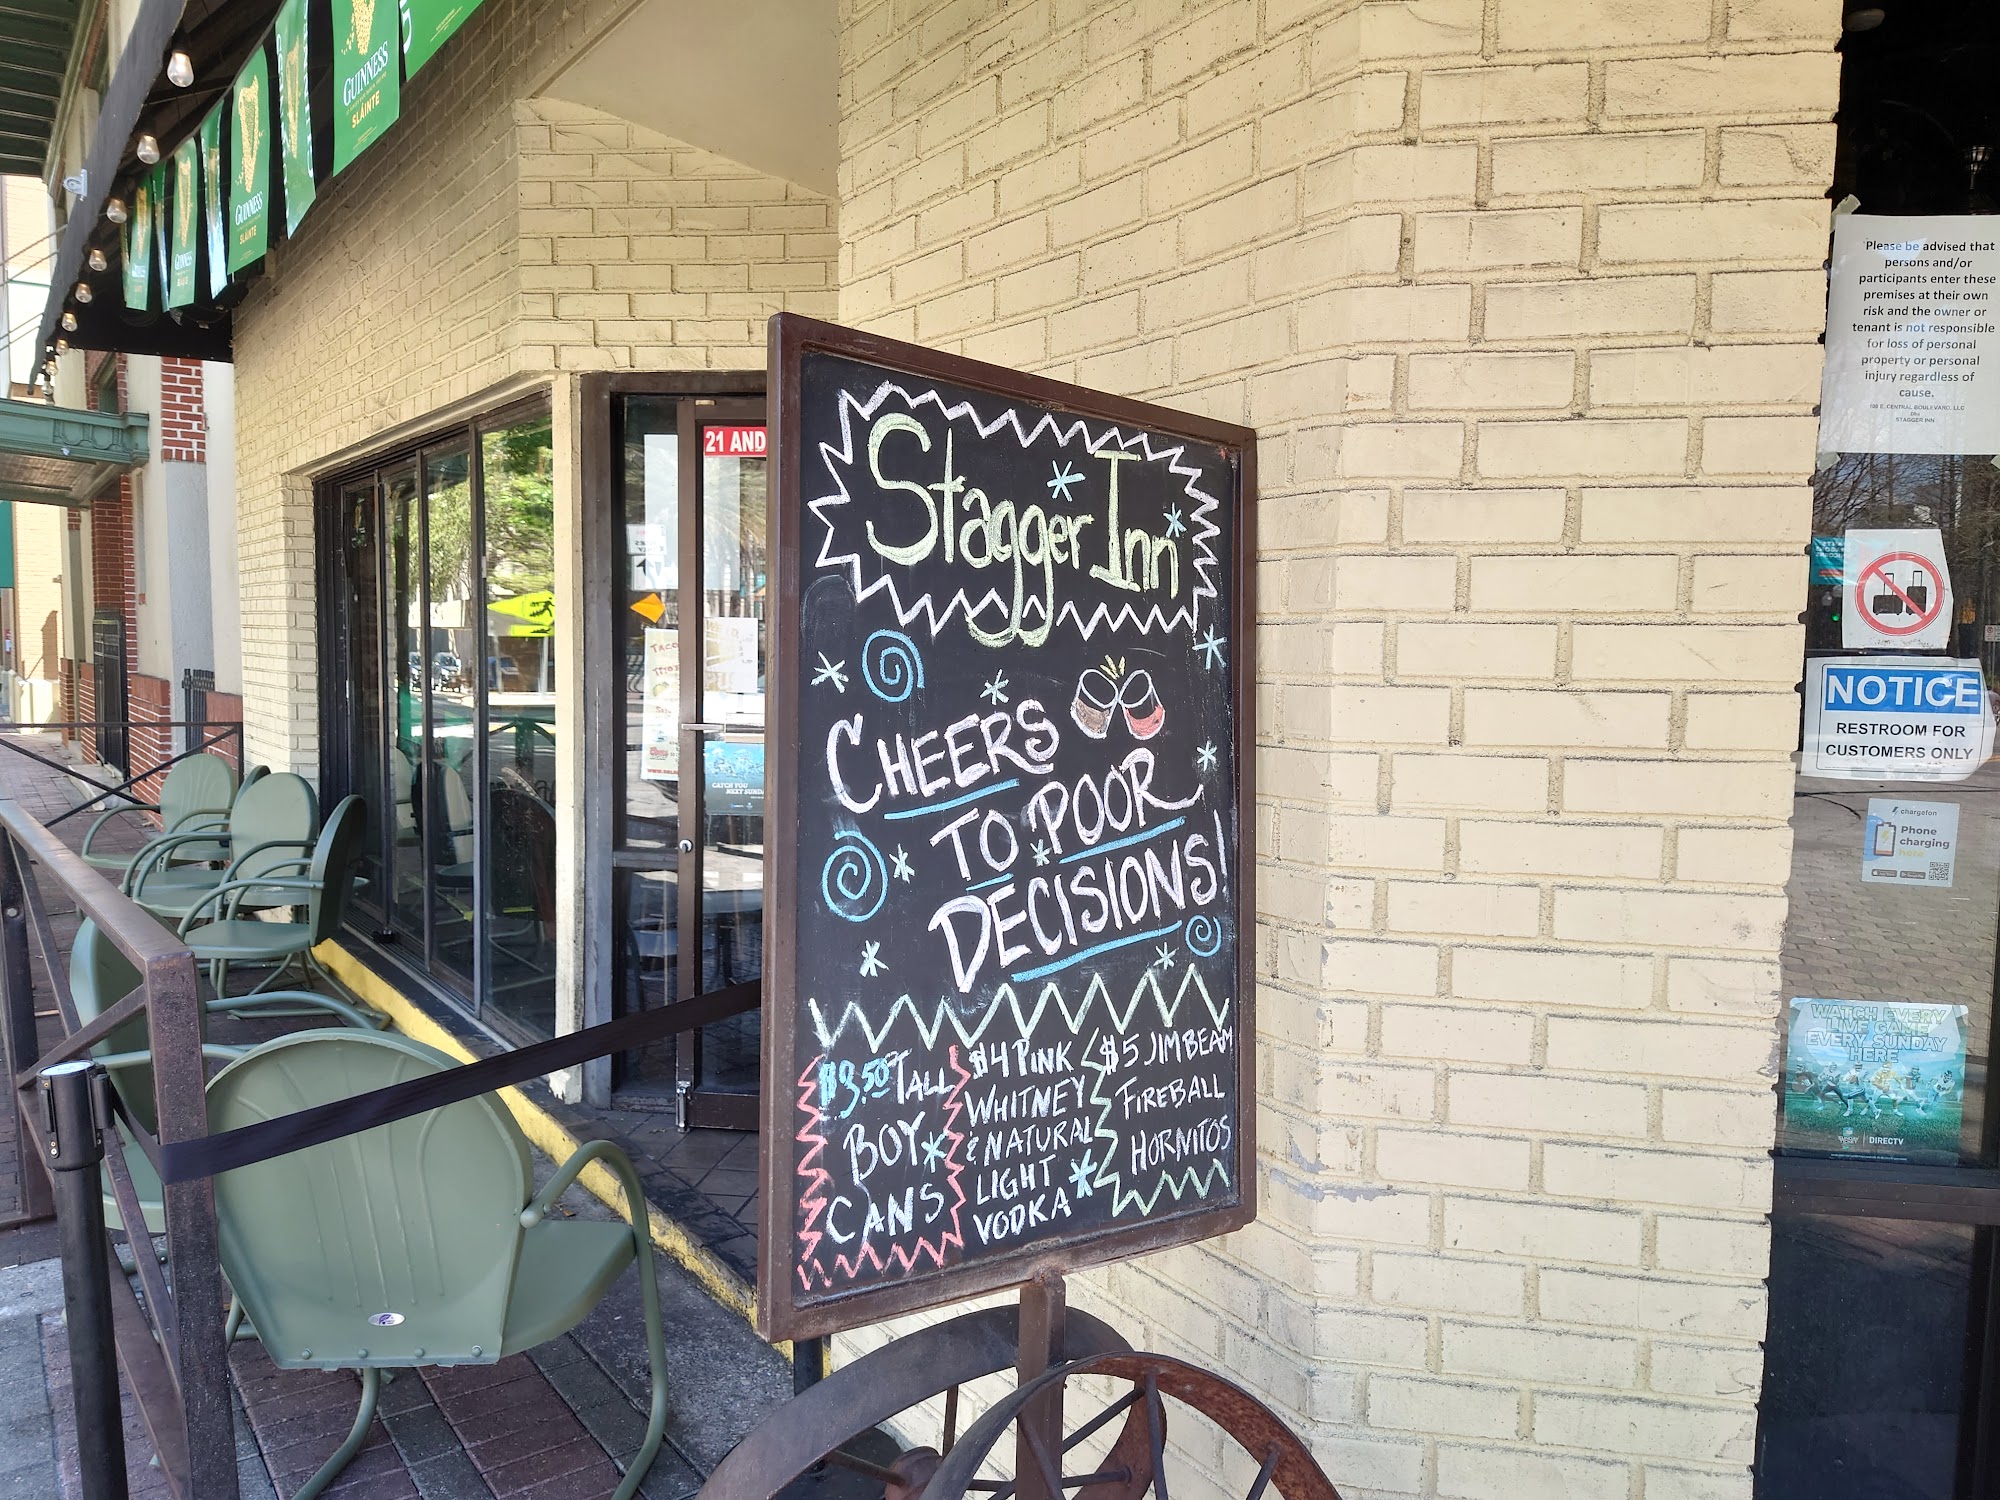 GUINNESS
SLÁINTE
GUINNESS
SLÁINTE
GUINNESS
21 AND
Stagger Inn
CHEERS
TO POOR
DECISIONS!
$3.50 TALL
BOY
CANS
$4 PINK
WHITNEY
& NATURAL
LIGHT
VODKA
$5 JIM BEAM
FIREBALL
HORNITOS
CATCH YOU
NEXT SUNDAY
Please be advised that
persons and/or
participants enter these
premises at their own
risk and the owner or
tenant is not responsible
for loss of personal
property or personal
injury regardless of
cause.
100 E. CENTRAL BOULEVARD, LLC
Dba
STAGGER INN
NOTICE
RESTROOM FOR
CUSTOMERS ONLY
chargefon
Phone
charging
here
WATCH EVERY
LIVE GAME
EVERY SUNDAY
HERE
DIRECTV